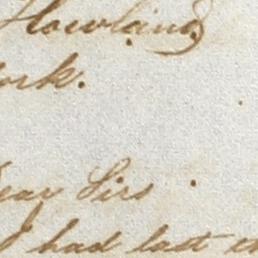 Howland
ork.
ear Sirs
I had last